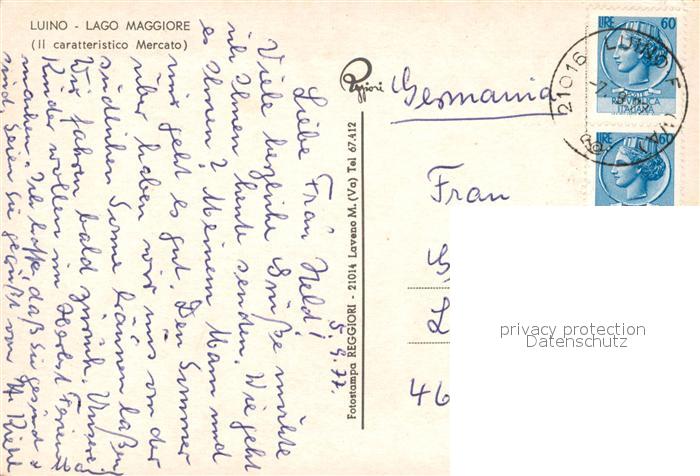 LUINO - LAGO MAGGIORE
(Il caratteristico Mercato)
5.9.77.
Liebe Frau Held!
Viele herzliche Grüße möchte
ich Ihnen heute senden. Wie geht
es Ihnen? Meinem Mann und
mir geht es gut. Den Sommer
über haben wir uns von der
südlichen Sonne bräunen laßen.
Wir fahren bald zurück. Unsere
Kinder wollen im Herbst Ferien
machen. Ich hoffe, daß Sie gesund
sind. Seien Sie gegrüßt von
Reggiori
Fotostampa REGGIORI - 21014 Laveno M. (Va) Tel 67.412
Germania
Frau
46
LIRE 60
POSTE
REPUBBLICA
ITALIANA
LIRE 60
21016 LUINO
privacy protection
Datenschutz